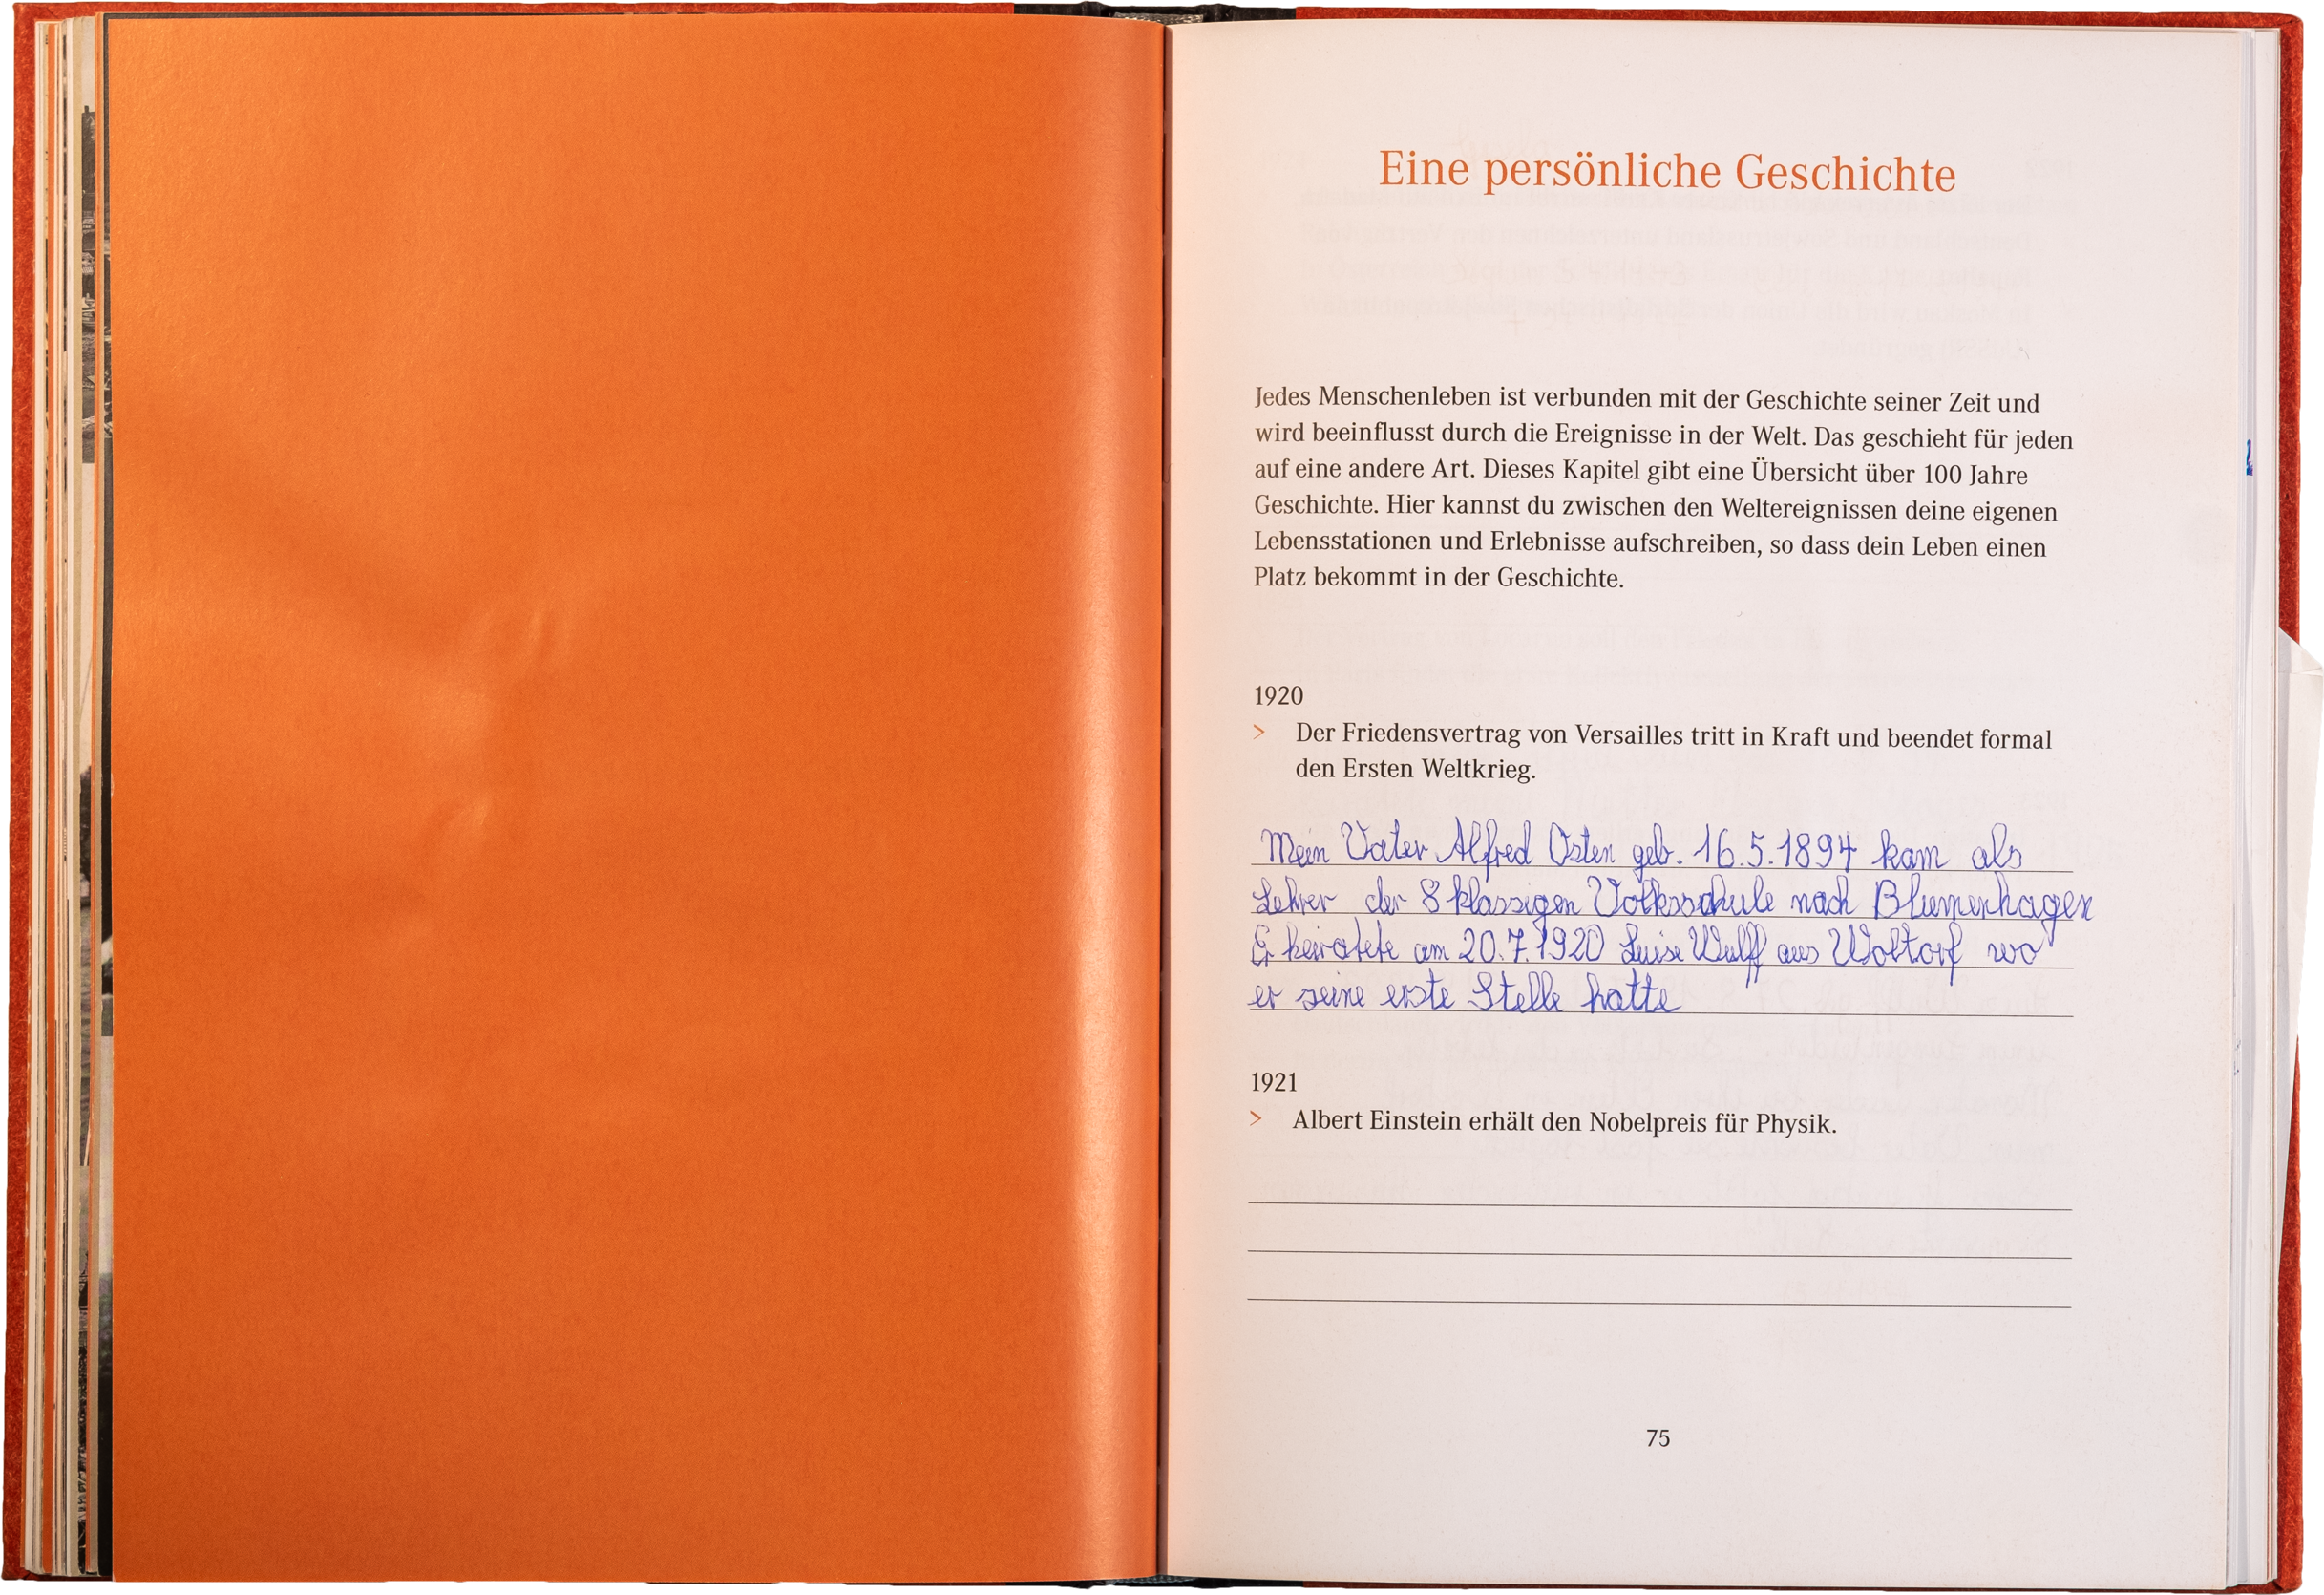 Eine persönliche Geschichte
Jedes Menschenleben ist verbunden mit der Geschichte seiner Zeit und
wird beeinflusst durch die Ereignisse in der Welt. Das geschieht für jeden
auf eine andere Art. Dieses Kapitel gibt eine Übersicht über 100 Jahre
Geschichte. Hier kannst du zwischen den Weltereignissen deine eigenen
Lebensstationen und Erlebnisse aufschreiben, so dass dein Leben einen
Platz bekommt in der Geschichte.
1920
> Der Friedensvertrag von Versailles tritt in Kraft und beendet formal
den Ersten Weltkrieg.
Mein Vater Alfred Osten geb. 16.5.1894 kam als
Lehrer der 8 klassigen Volksschule nach Blumenhagen
Er heiratete am 20.7.1920 Luise Wulff aus Woltorf wo
er seine erste Stelle hatte
1921
> Albert Einstein erhält den Nobelpreis für Physik.
75